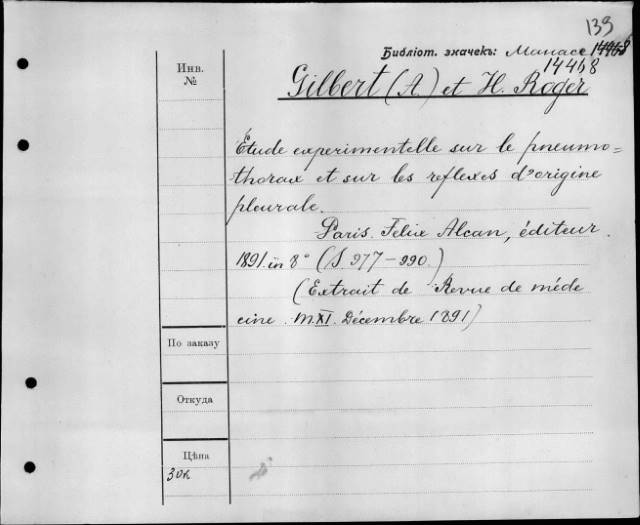 139
Библіот. значекъ: Манасе 14468
14468
Инв.
№
Gilbert (A.) et H. Roger
Etude experimentelle sur le pneumo=
thorax et sur les reflexes d'origine
pleurale.
Paris. Felix Alcan, éditeur.
1891. in 8° (S. 977-990.)
(Extrait de Revue de méde
cine. M XI. Décembre 1891)
По заказу
Откуда
Цѣна
30к